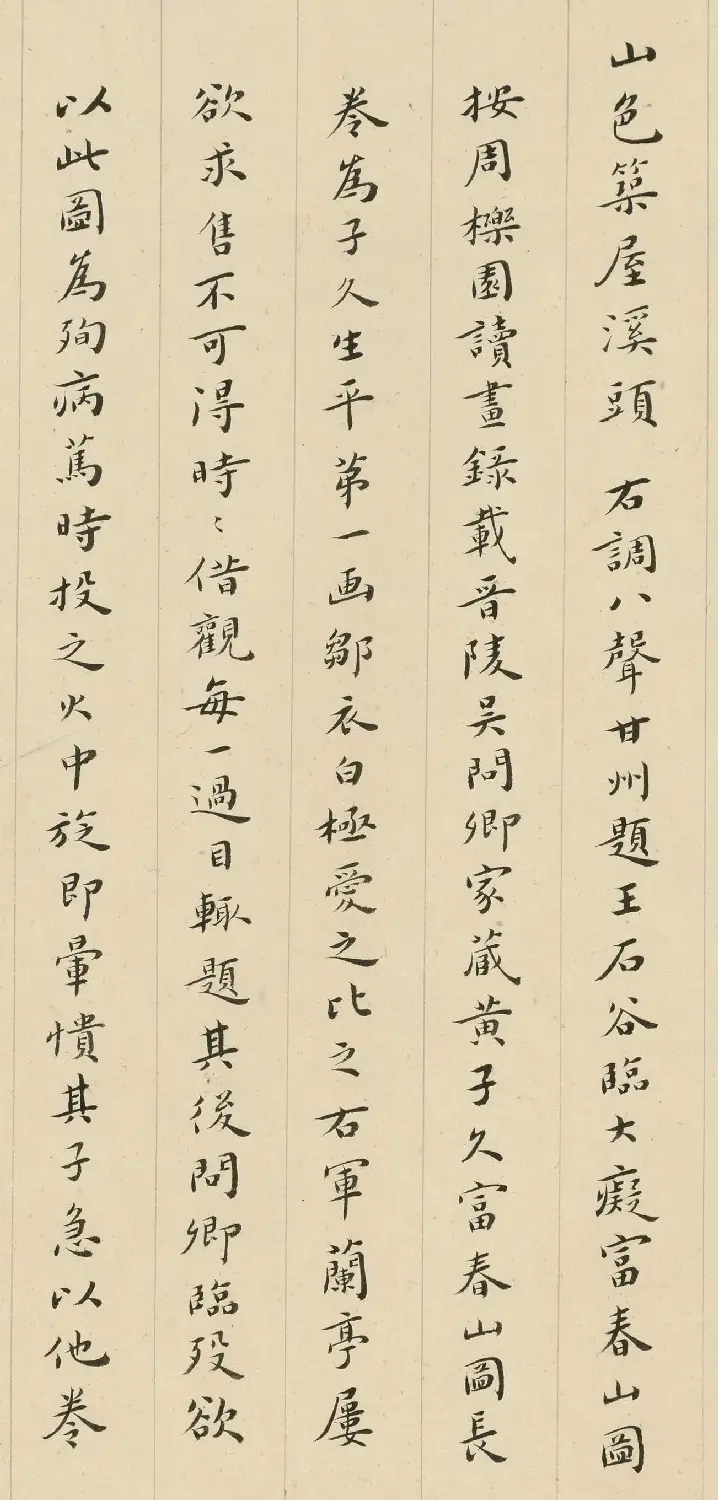 山色築屋溪頭 右調八聲甘州題王石谷臨大癡富春山圖
按周櫟園讀畫錄載晋陵吴問卿家蔵黄子久富春山圖長
卷為子久生平苐一画鄒衣白極愛之比之右軍蘭亭屢
欲求售不可淂時〻借觀每一過目輙題其後問卿臨歿欲
以此圖為殉病篤時投之火中旋即暈憒其子急以他卷